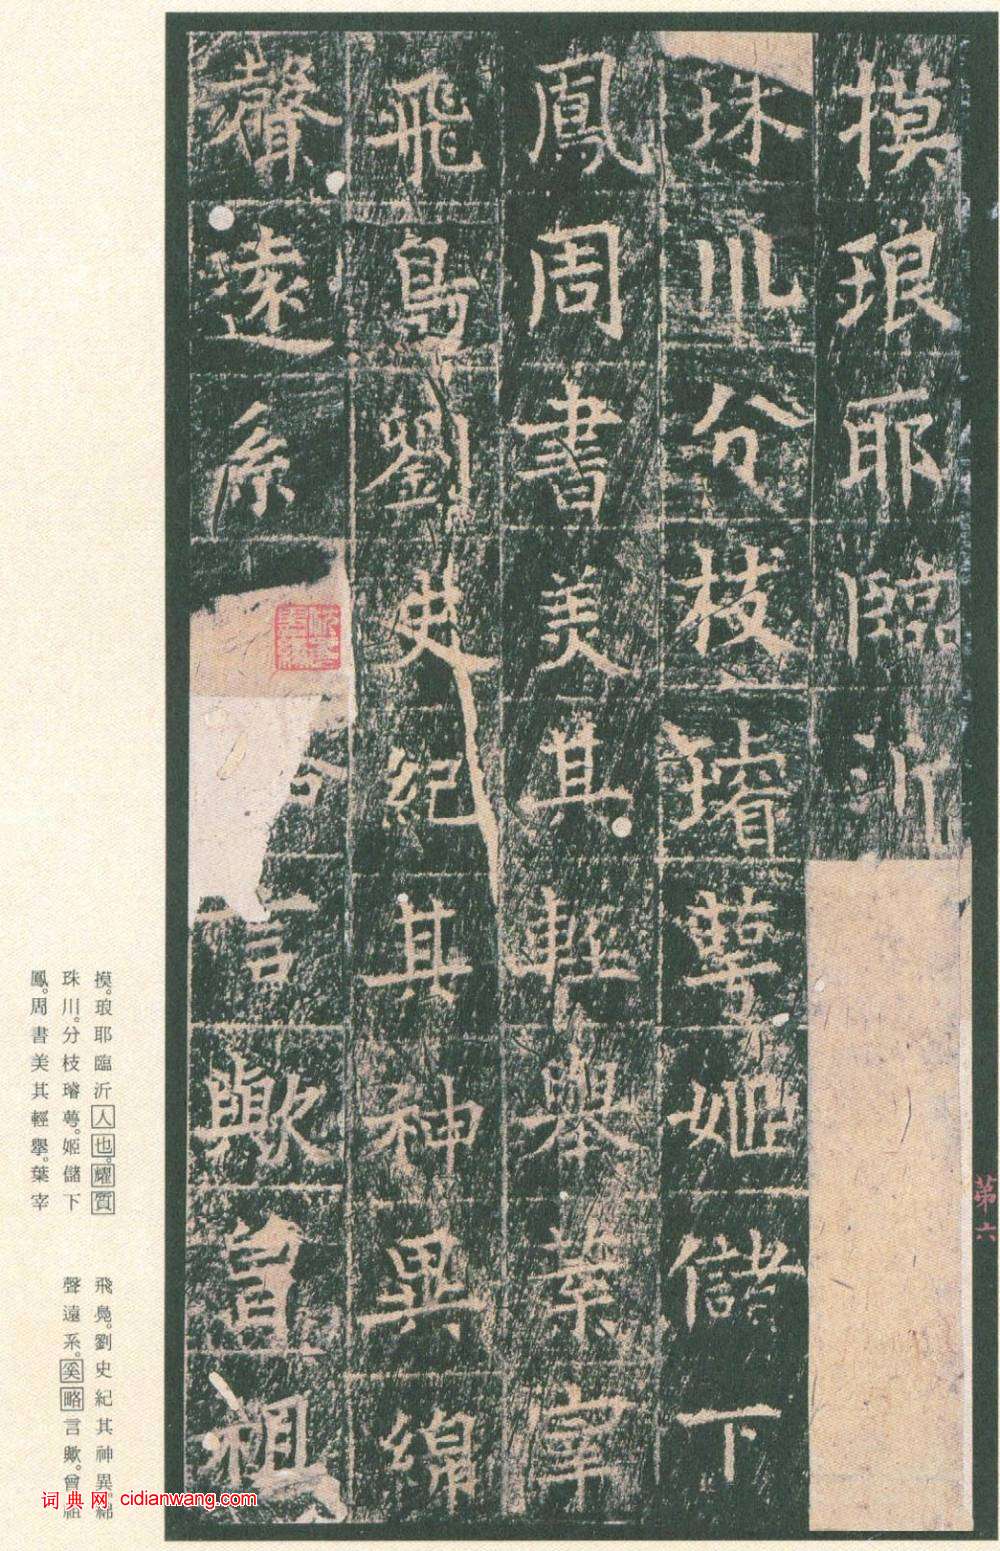 摸琅耶臨沂
珠川分枝璿萼姬儲下
鳳周書美其輕舉葉宰
飛鳧劉史紀其神異綿
聲遠系 言歟曾祖
第六
摸。琅耶臨沂人也。耀質
珠川。分枝璿萼。姬儲下
鳳。周書美其輕擧。葉宰
飛鳧。劉史紀其神異。綿
聲遠系。奚略言歟。曾祖
词典网 cidianwang.com